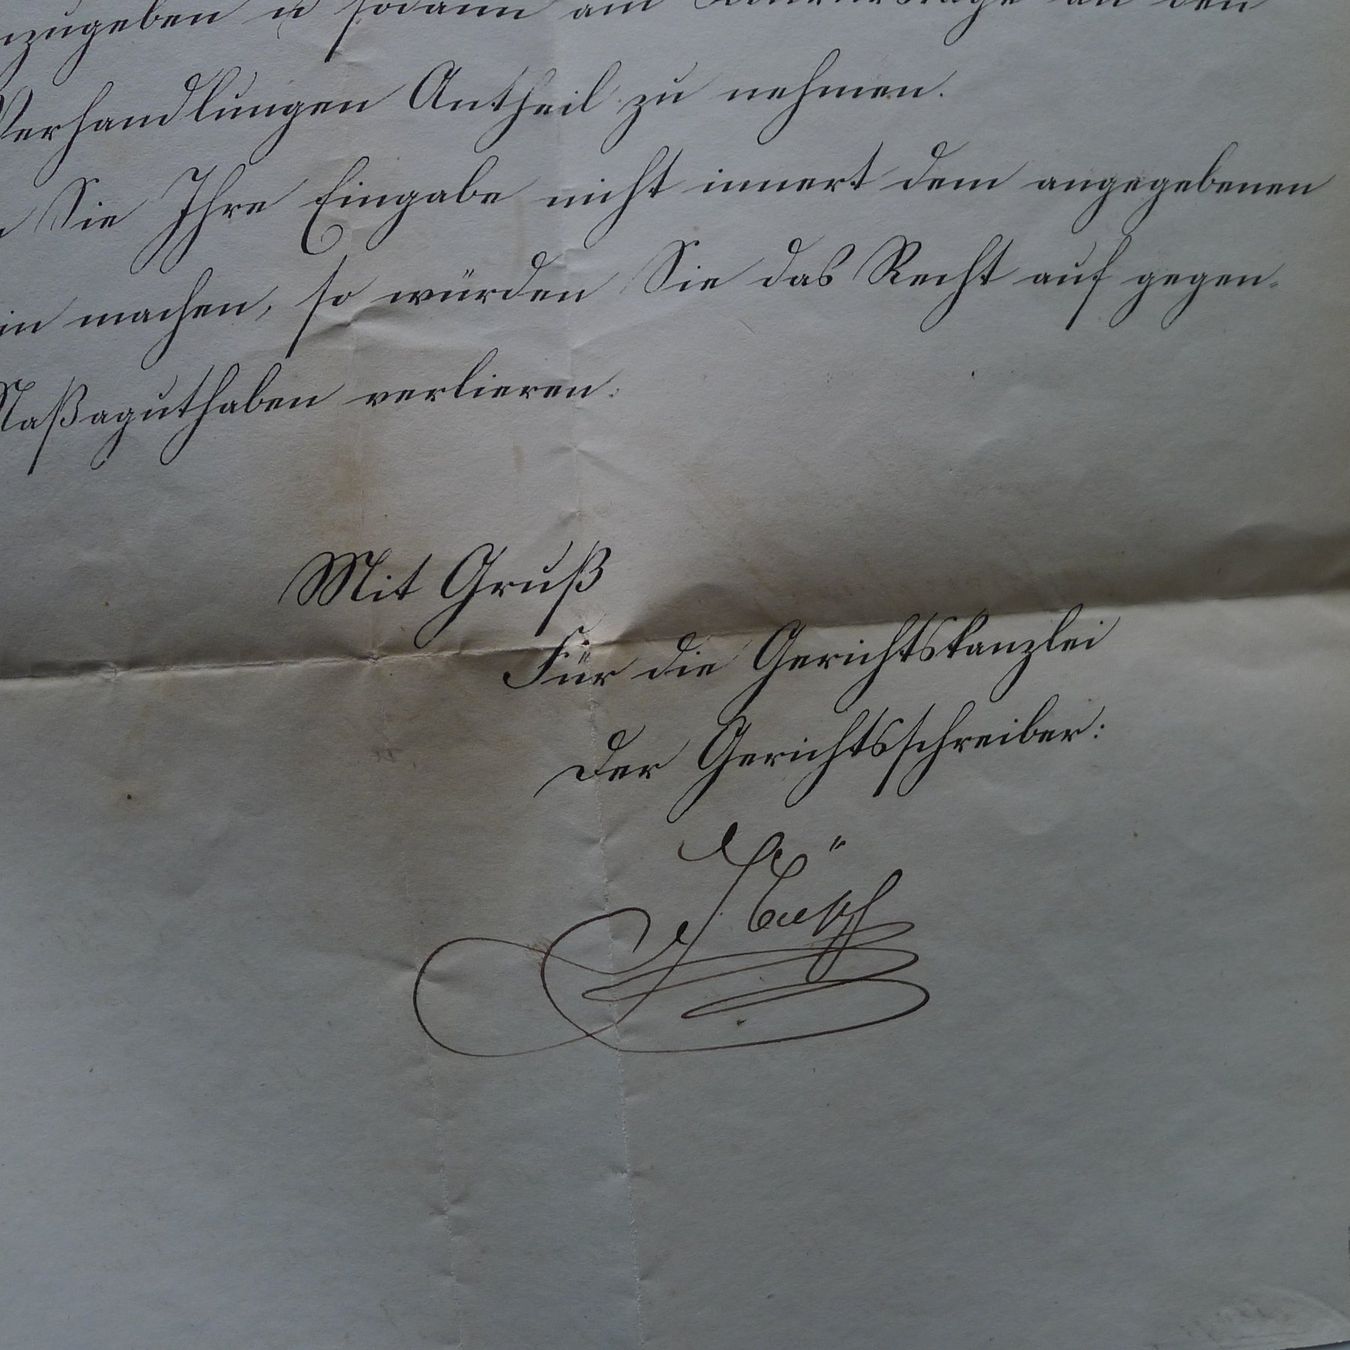 nzugeben u sodann am an den
Verhandlungen Antheil zu nehmen.
Sie Ihre Eingabe nicht innert dem angegebenen
in machen, so würden Sie das Recht auf gegen-
Maßaguthaben verlieren.
Mit Gruß
Für die Gerichtskanzlei
Der Gerichtsschreiber: